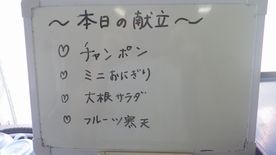 ～本日の献立～
♡ チャンポン
♡ ミニおにぎり
♡ 大根サラダ
♡ フルーツ寒天